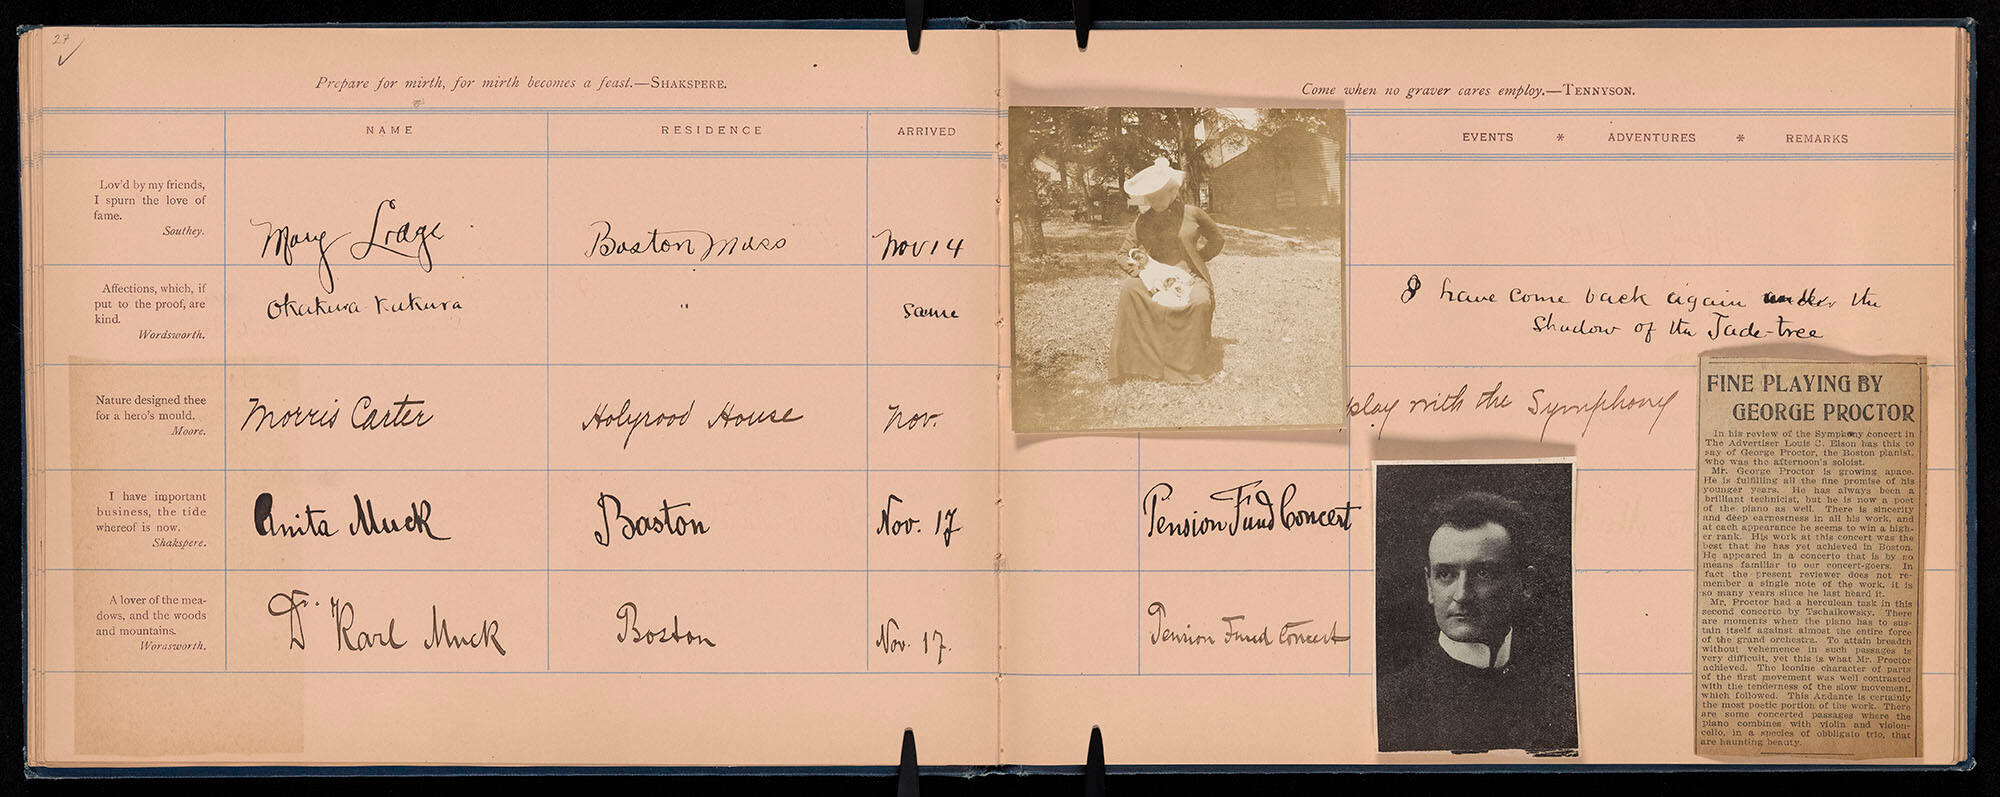 27
Prepare for mirth, for mirth becomes a feast.—SHAKSPERE.
NAME RESIDENCE ARRIVED
Lov'd by my friends,
I spurn the love of
fame.
Southey.
Mary Lodge Boston Mass Nov 14
Affections, which, if
put to the proof, are
kind.
Wordsworth.
Okakura Kakuzo " same
Nature designed thee
for a hero's mould.
Moore.
Morris Carter Holyrood House Nov.
I have important
business, the tide
whereof is now.
Shakspere.
Anita Muck Boston Nov. 17
A lover of the mea-
dows, and the woods
and mountains.
Wordsworth.
Dr. Karl Muck Boston Nov. 17.
Come when no graver cares employ.—TENNYSON.
EVENTS * ADVENTURES * REMARKS
I have come back again under the
Shadow of the Jade-tree
play with the Symphony
Pension Fund Concert
Pension Fund Concert
FINE PLAYING BY
GEORGE PROCTOR
In his review of the Symphony concert in
The Advertiser Louis C. Elson has this to
say of George Proctor, the Boston pianist,
who was the afternoon's soloist.
Mr. George Proctor is growing apace.
He is fulfilling all the fine promise of his
younger years. He has always been a
brilliant technicist, but he is now a poet
of the piano as well. There is sincerity
and deep earnestness in all his work, and
at each appearance he seems to win a high-
er rank. His work at this concert was the
best that he has yet achieved in Boston.
He appeared in a concerto that is by no
means familiar to our concert-goers. In
fact the present reviewer does not re-
member a single note of the work, it is
so many years since he last heard it.
Mr. Proctor had a herculean task in this
second concerto by Tschaikowsky. There
are moments when the piano has to sus-
tain itself against almost the entire force
of the grand orchestra. To attain breadth
without vehemence in such passages is
very difficult, yet this is what Mr. Proctor
achieved. The leonine character of parts
of the first movement was well contrasted
with the tenderness of the slow movement,
which followed. This Andante is certainly
the most poetic portion of the work. There
are some concerted passages where the
piano combines with violin and violon-
cello, in a species of obbligato trio, that
are haunting beauty.